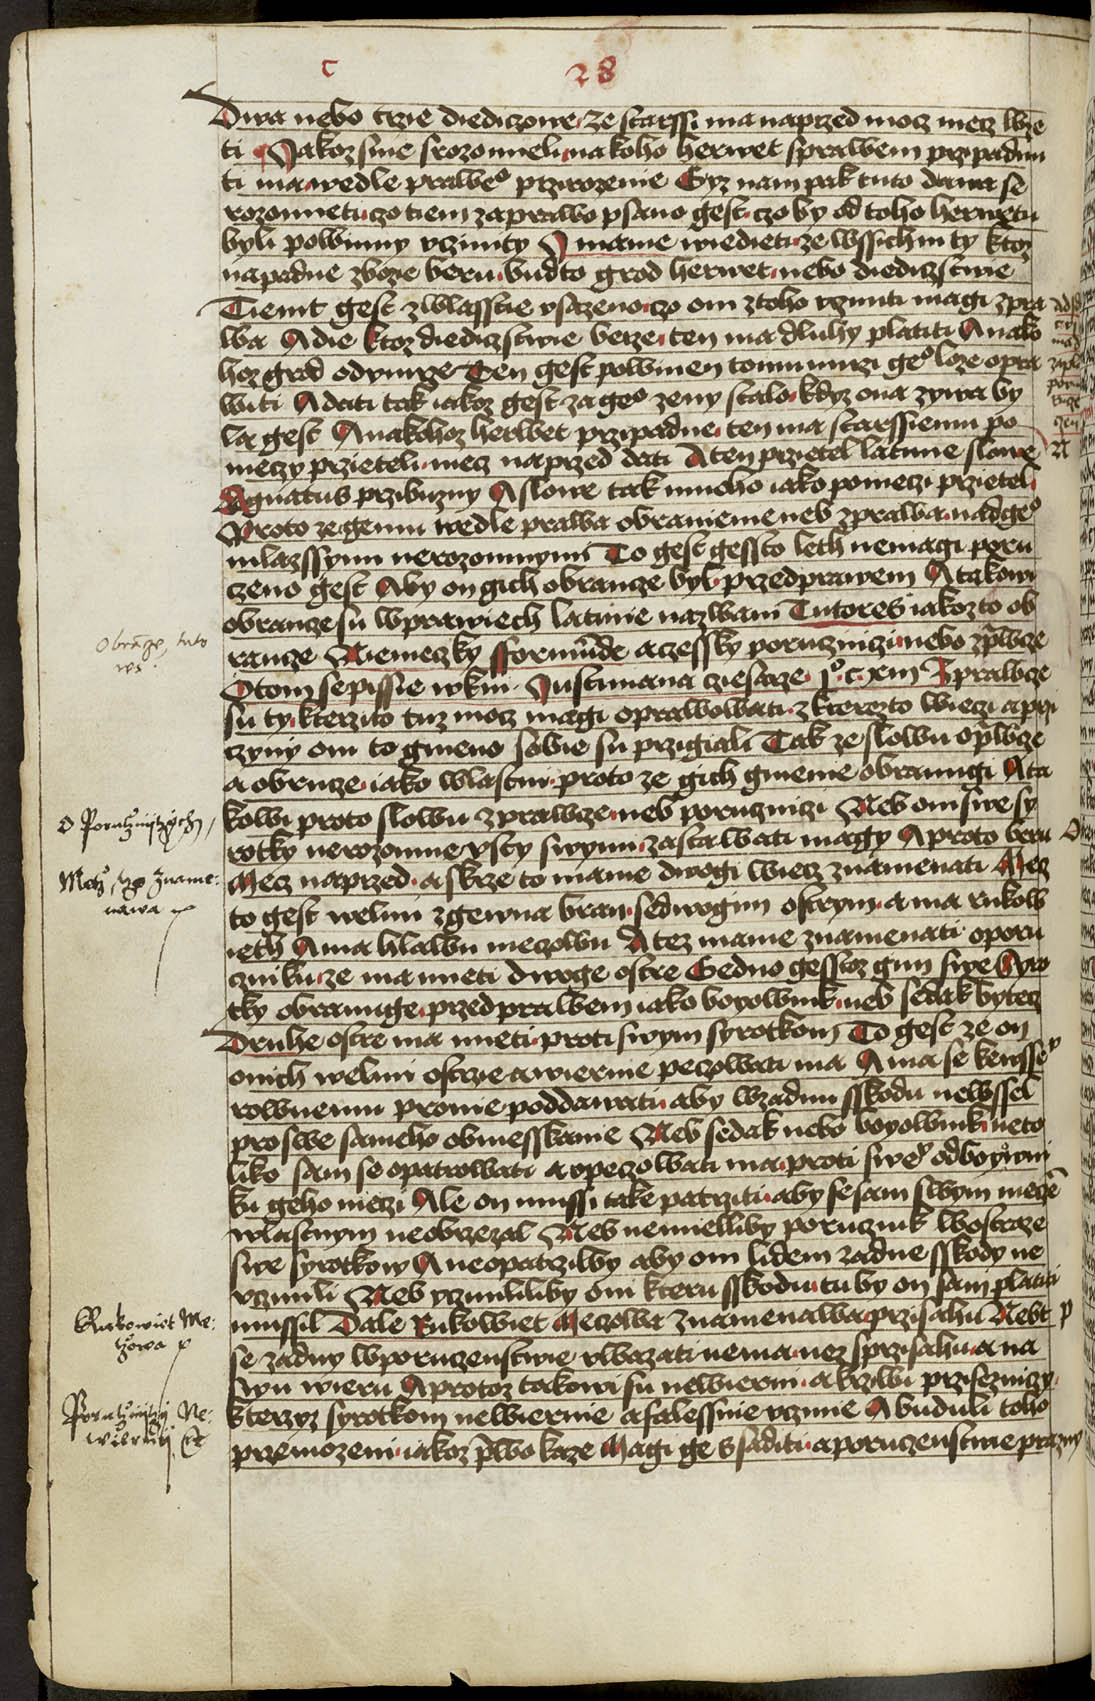 c 28
Dwa nebo trzie diediczowe ze starssi ma naprzed mocz mecz wze
ti Jakoz sme srozomieli na koho herwet sprawem przipadnu
ti ma wedle prawe° przirozenie Gyz nam pak tuto dawa se
rozometi czo tiem za prawo psano gest czo by od toho herwetu
byli powinny vcziniti J mame wiedieti ze wssichni ty ktoz
napadne zbozie beru bud to grad herwet nebo diediczstwie
Tiemt gest zwlasstie vsazeno czo oni z toho vcziniti magi zpra
wa A die ktoz diediczstwie berze ten ma dluhy platiti A nako
hoz grad odymrze Ten gest powinen tomu mrzi ge° loze opra
witi A dati tak iakoz gest za ge° zeny stalo kdyz ona zywa by
la gest A nakohoz herwet przipadne ten ma starssiemu po
meczy przieteli mecz naprzed dati A ten przietel latinie slowe
Agnatus przibuzny A slowe tak mnoho iako po meczi przietel
Proto ze gemu wedle prawa obraniemie neb zprawa nad ge°
mlazssymi nerozomnymi To gest gessto leth nemagi poru
czeno gest Aby on gich obrancze byl przed prawem A takowi
obrancze su w prawiech latinie nazwani Tutores iakozto ob
rancze Niemeczky fformunde a czessky poruczniczi nebo zprawcze
O tom se pissie w knii Justiniana cziesarze
su ty kterzito tuz mocz magi oprawowati z kterezto wieczi a przi
czyny oni to gmeno sobie su przigiali Tak ze slowu oprawcze
a obrancze iako wlastni proto ze gich gmenie obranugi A ta
kowi proto slowu zprawcze neb poruczniczi Neb oni swe sy
rotky nerozomne vsty swymi zastawati magy A proto beru
Mecz naprzed a skrze to mame dwogi wiecz znamenati Mecz
to gest welmi zgewna bran se dwogim ostrym a ma rukow
ieth A ma hlawu meczowu A tez mame znamenati o poru
czniku ze ma mieti dwoge ostre Gedno gesstoz gim swe Syro
tky obranuge przed prawem iako bogownik neb sedlak bytecz
Druhe ostre ma mieti proti swym syrotkom To gest ze on
o nich welmi ostrzie a wiernie peczowati ma A ma se kensse
rowniemu promie poddawati aby w zadnu sskodu newssel
pro swe sameho obmesskanie Neb sedlak nebo boyownik neto
liko sam se opatrowati a opeczowati ma proti swe° odboyowni
ku geho meczi Ale on mussi take patrziti aby se sam swym mecze
wlastnym neobrzezal Neb nemielliby porucznik wostraze
swe syrotkow A neopatrzilby aby oni lidem zadne sskody ne
vczinili Neb vczinililiby oni kteru sskodu tu by on sam platiti
mussil Dale Rukowiet Meczowa znamenawa przisahu Nebt
se zadny w poruczenstwie vwazati nema nez s przisahu a na
swu wieru A protoz takowi su newierni a krziwi przisezniczy
kterzyz syrotkom newiernie a falessnie vczinie A buduli toho
przemozeni iakoz prawo kaze Magi ge ssaditi a poruczenstwie prazny
Obrancze, tuto
res.
O Porucznyczych
Mecz, czo zname:
nawa
Rukowiet Me:
czowa
Porucznyczy Ne:
wierny